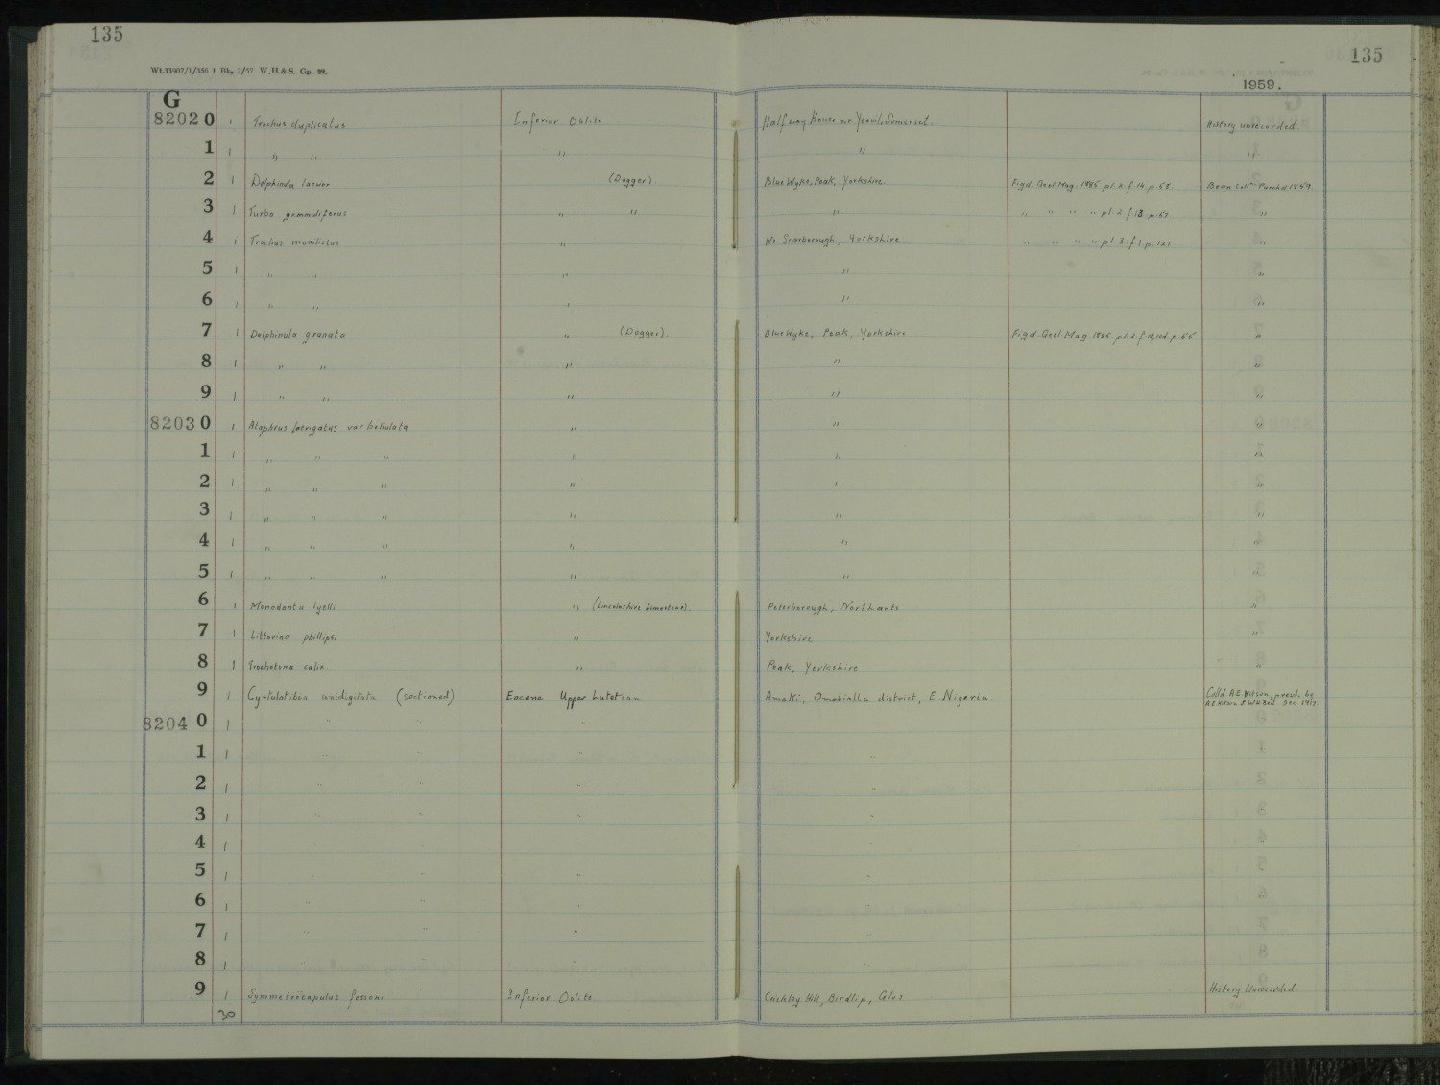 135
135
1959.
G
82020 1 Trochus duplicatus Inferior Oolite Half way House nr Yeovil, Somerset. History unrecorded.
1 1 " " " " "
2 1 Delphinula (Dogger) Blue Wyke, Peak, Yorkshire. Figd. Geol. Mag. 1885 pl. 2 f. 14 p. 58. Bean Coll. Purchd. 1859.
3 1 Turbo gemmiferus " " " " " " " pl. 2 f. 13 p. 57 "
4 1 Trochus monilitectus " Nr Scarborough, Yorkshire " " " " pl. 3 f. 1 p. 121 "
5 1 " " " " "
6 1 " " " " "
7 1 Delphinula granata " (Dogger). Blue Wyke, Peak, Yorkshire Figd. Geol. Mag. 1885 pl. 2 "
8 1 " " " " "
9 1 " " " " "
82030 1 Ataphrus laevigatus var " " "
1 1 " " " " " "
2 1 " " " " " "
3 1 " " " " " "
4 1 " " " " " "
5 1 " " " " "
6 1 Monodonta lyelli " (Lincolnshire limestone). Peterborough, Northants "
7 1 Littorina phillipsi " Yorkshire "
8 1 Trochotoma calix " Peak, Yorkshire "
9 1 unidigitata (sectioned) Eocene Upper Lutetian Amaki, Omobialla district, E. Nigeria. Colld A.E. Kitson, presd. by
82040 1 " " " "
1 1 " " " "
2 1 " " " "
3 1 " " " "
4 1 " " " "
5 1 " " " "
6 1 " " " "
7 1 " " " "
8 1 " " " "
9 1 Symmetrocapulus Inferior Oolite Crickley Hill, Birdlip, Glos History Unrecorded
30